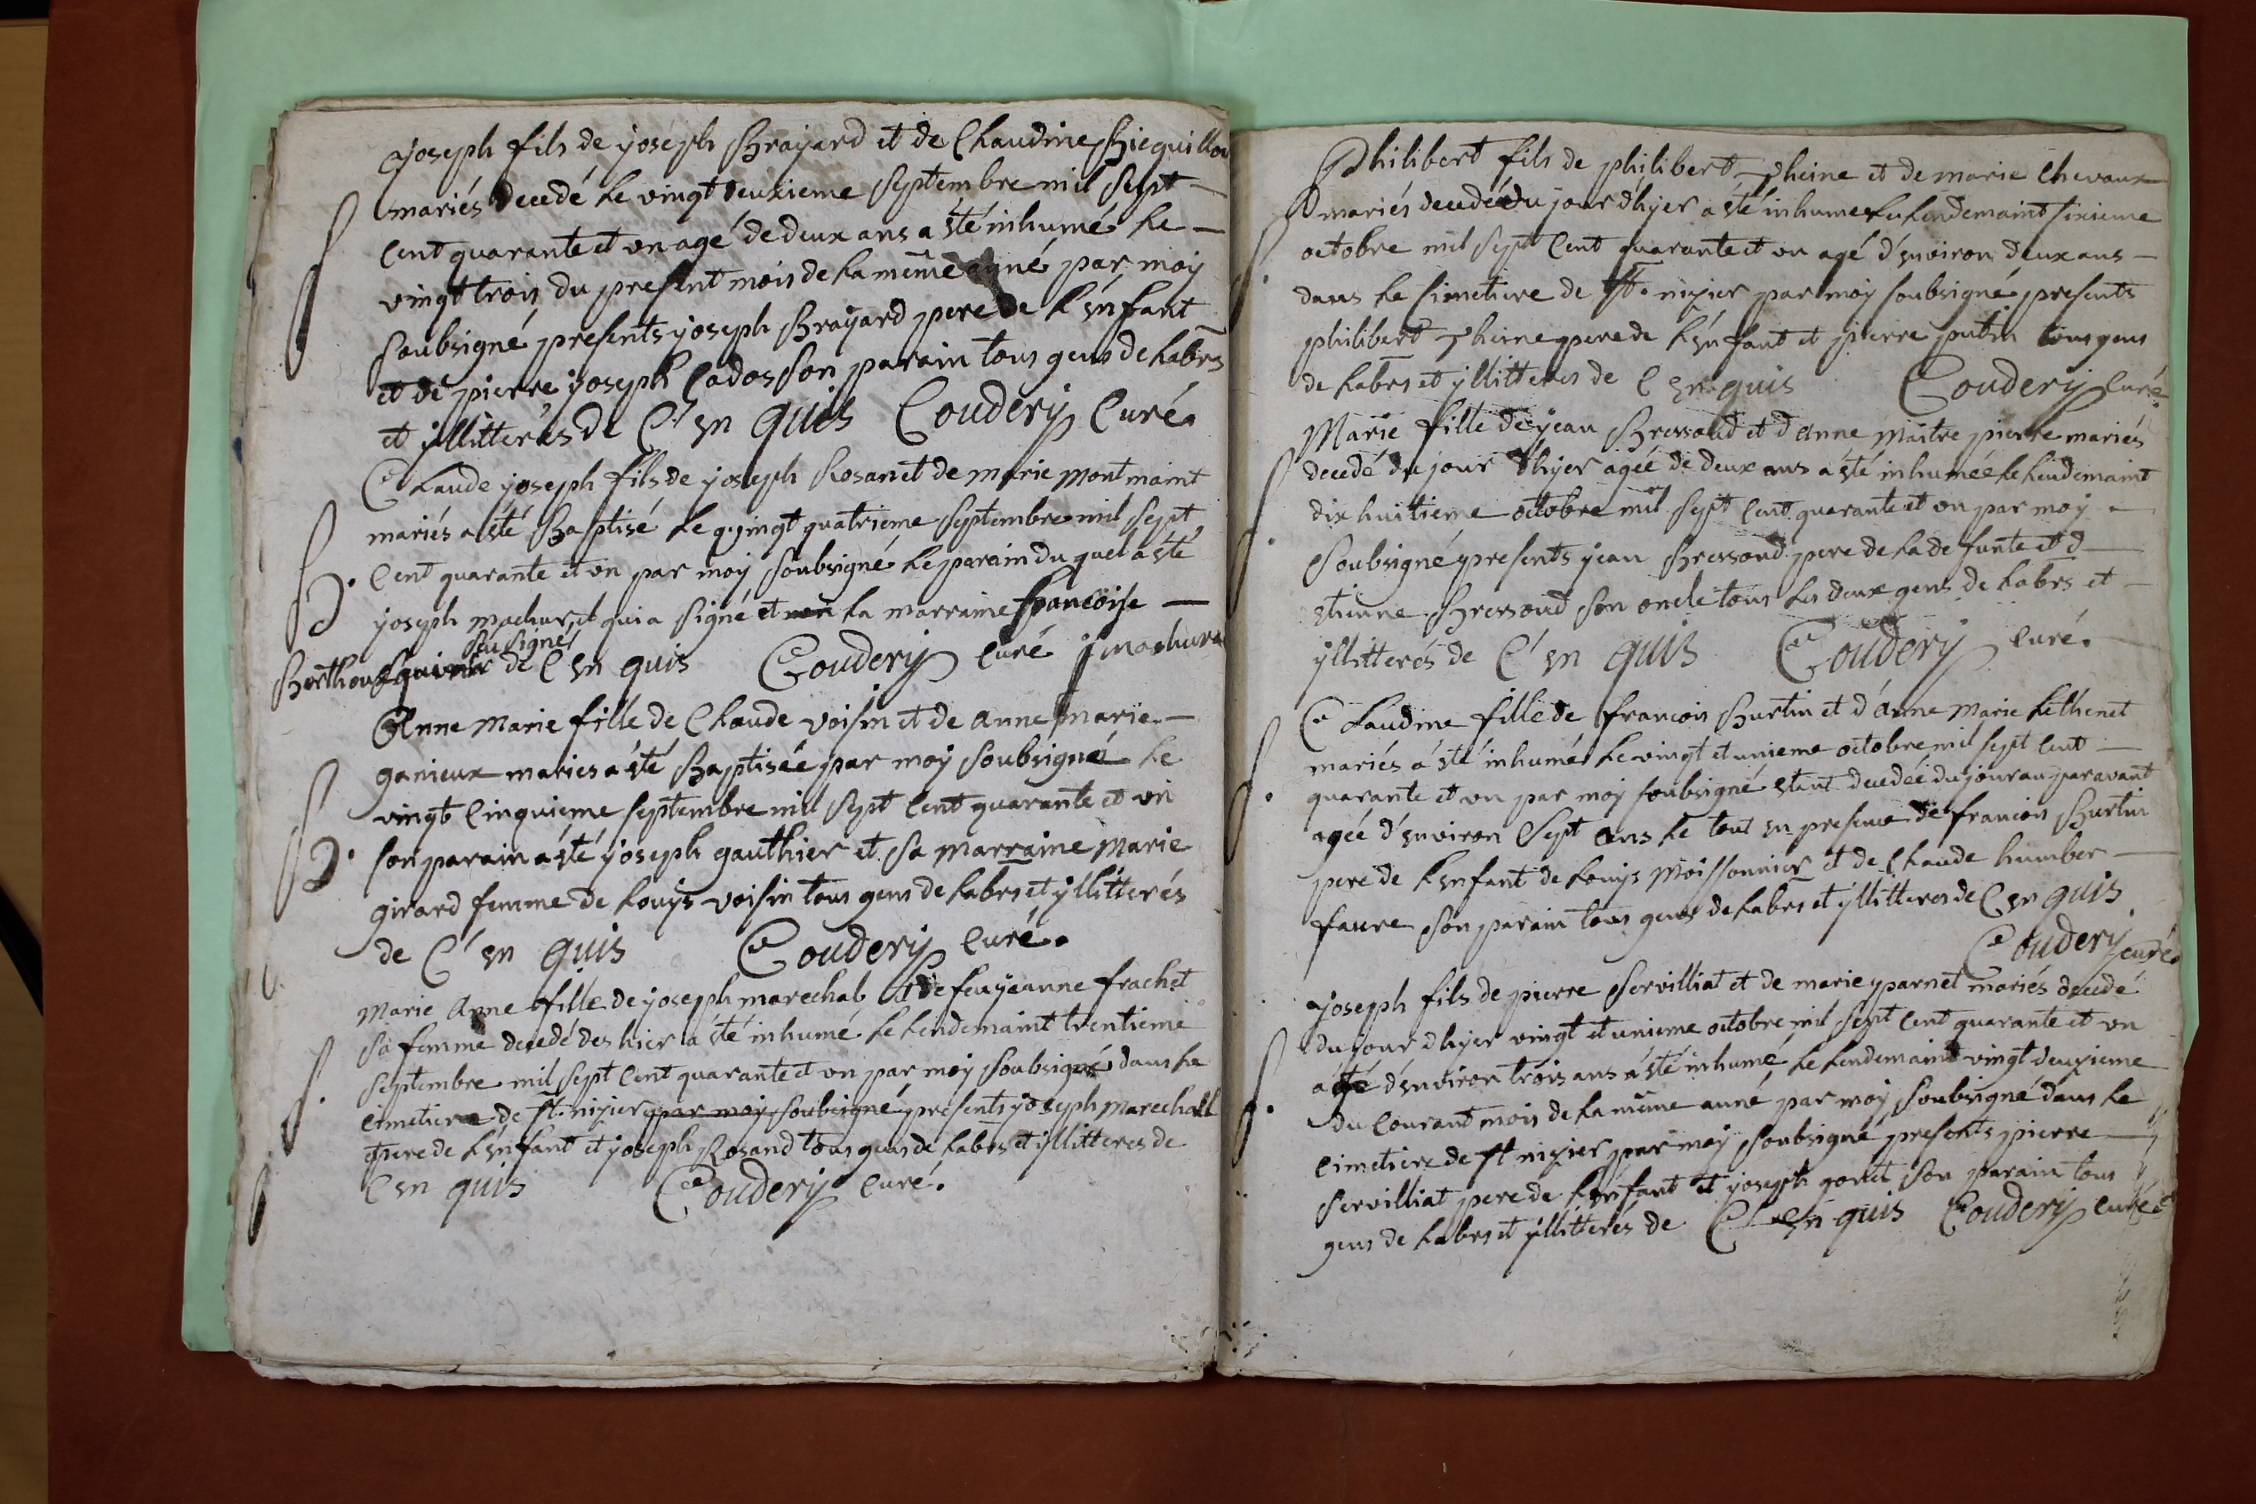 Joseph fils de joseph Brayard et de Claudine Biequillon
mariés decedé le vingt deuxieme septembre mil sept
cent quarante et un agé de deux ans a été inhumé le
vingt trois du present mois de la même anné par moy
soubsigné presents joseph Brayard pere de l'enfant
et de pierre joseph Cados son parain tous gens de labrs
et yllitterés de C'en quis Coudery Curé.
Claude joseph fils de joseph Rosan et de marie montmaint
mariés a été Baptisé le vingt quatrieme septembre mil sept
B. cent quarante et un par moy soubsigné le parain du quel a été
joseph machura et qui a signé et la marraine françoise
soussigné
Berthoux de C en quis Coudery curé j machura
Anne marie fille de Claude voisin et de anne marie
ganieux mariés a été Baptisée par moy soubsigné le
vingt cinquieme septembre mil sept cent quarante et un
B. son parain a été joseph gauthier et sa marraine marie
girard femme de louys voisin tous gens de labrs et yllitterés
de C'en quis Coudery curé.
marie anne fille de joseph marechal et de feu jeanne frachet
sa femme decedé des hier a été inhumé le lendemaint trentieme
S. septembre mil sept cent quarante et un par moy soubsigné dans le
cimetiere de st. nizier par moy soubsigné presents joseph marechall
pere de l'enfant et joseph Rosand tous gens de labrs et yllitteres de
C en quis Coudery curé.
Philibert fils de philibert pheine et de marie Chevaux
mariés decedé du jour d'hyer a été inhumé le lendemaint sixieme
octobre mil sept cent quarante et un agé d'environ deux ans
dans le simetiere de st. nizier par moy soubsigné presents
philibert pheine pere de l'enfant et pierre putin tous gens
de labrs et yllitteres de C en quis Coudery curé.
Marie fille de jean Bressoud et d'anne maitre pierre mariés
decedé du jour d'hyer agée de deux ans a été inhumée le lendemaint
dix huitieme octobre mil sept cent quarante et un par moy
soubsigné presents jean Bressoud pere de la defunte et d
etienne Bressoud son oncle tous les deux gens de labrs et
yllitterés de C'en quis Coudery curé.
Claudine fille de francois Burtin et d'anne marie Lethenet
mariés a été inhumé le vingt et unieme octobre mil sept cent
quarante et un par moy soubsigné etant decedée du jour auparavant
agée d'environ sept ans le tout en presence de francois Burtin
pere de l'enfant de louys moissonnier et de Claude humber
faure son parain tous gens de labrs et yllitteres de C en quis
Coudery curé.
joseph fils de pierre servilliat et de marie parnet mariés decedé
du jour d'hyer vingt et unieme octobre mil sept cent quarante et un
agé d'environ trois ans a été inhumé le lendemaint vingt deuxieme
du courant mois de la même anné par moy soubsigné dans le
cimetiere de st nizier par moy soubsigné presents pierre
servilliat pere de l'enfant et joseph gonet son parain tous
gens de labrs et yllitterés de C en quis Coudery curé